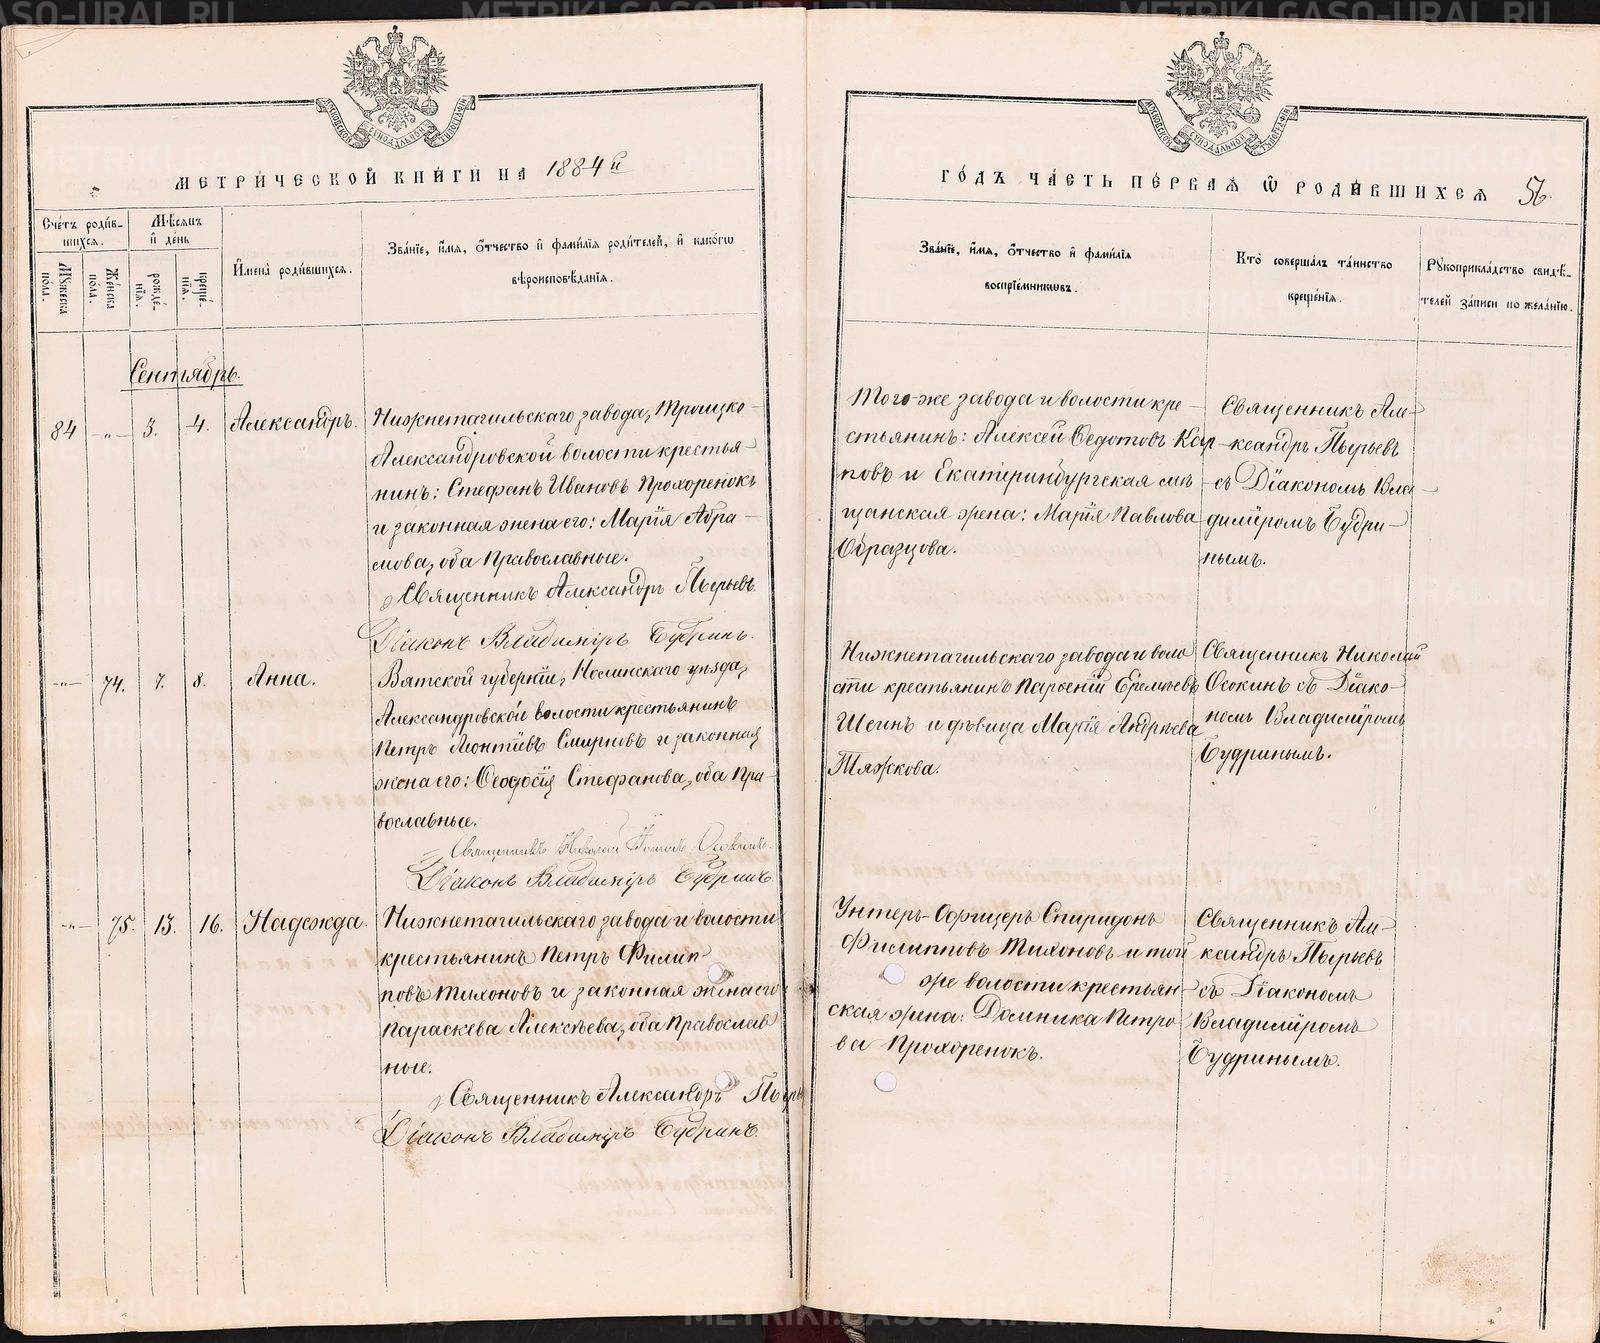 МЕТРИ́ЧЕСКОЙ КНИ́ГИ НА 1884й
Сче́тъ роди́в-
шихся.
Мѣ́сяцъ
и҆ де́нь
Мꙋ́жеска
по́ла.
Же́нска
по́ла.
рожде́-
нїѧ.
креще́-
нїѧ.
И҆мена̀ роди́вшихся.
Зва́нїе, и҆́мѧ, ѻ҆́тчество и҆ фамѝлїѧ роди́телей, и҆ како́гѡ
вѣроисповѣ́данїѧ.
Сентябрь.
84
-"-
3.
4.
Александръ.
Нижнетагильскаго завода, Троицко-
Александровской волости крестья-
нинъ: Стефанъ Ивановъ Прохоренокъ
и законная жена его: Марія Абра-
мова, оба Православные.
Священникъ Александръ Пырьевъ.
Діаконъ Владиміръ Будринъ.
-"-
74.
7.
8.
Анна.
Вятской губерніи, Нолинскаго уѣзда,
Александровской волости крестьянинъ
Петръ Леонтіевъ Смирновъ и законная
жена его: Ѳеодосія Стефанова, оба Пра-
вославные.
Священникъ Николай Осокинъ.
Діаконъ Владиміръ Будринъ.
-"-
75.
13.
16.
Надежда.
Нижнетагильскаго завода и волости
крестьянинъ Петръ Филип-
повъ Тихоновъ и законная жена его
Параскева Алексѣева, оба Православ
ные.
Священникъ Александръ Пырь
Діаконъ Владиміръ Будринъ.
ГО́ДЪ ЧА́СТЬ ПЕ́РВАѦ Ѡ҆ РОДИ́ВШИХСѦ 56.
Зва́нїе, и҆́мѧ, ѻ҆́тчество и҆ фамѝлїѧ
воспрїе́мникѡвъ.
Кто̀ соверша́лъ та́инство
креще́нїѧ.
Рꙋкоприкла́дство свидѣ́-
телей за́писи по жела́нїю.
Того-же завода и волости кре-
стьянинъ: Алексѣй Ѳедотовъ Кар-
повъ и Екатеринбургская мѣ
щанская жена: Марія Павлова
Образцова.
Священникъ Але-
ксандръ Пырьевъ
съ Діакономъ Вла-
диміромъ Будри-
нымъ.
Нижнетагильскаго завода и воло
сти крестьянинъ Парѳеній Еремѣевъ
Шеинъ и дѣвица Марія Андреева
Тяжкова.
Священникъ Николай
Осокинъ съ Діако-
номъ Владиміромъ
Будринымъ.
Унтеръ-Офицеръ Спиридонъ
Филипповъ Тихоновъ и той
же волости крестьян-
ская жена: Домника Петро
ва Прохоренокъ.
Священникъ Але-
ксандръ Пырьевъ
съ Діакономъ
Владиміромъ
Будринымъ.
METRIKI.GASO-URAL.RU